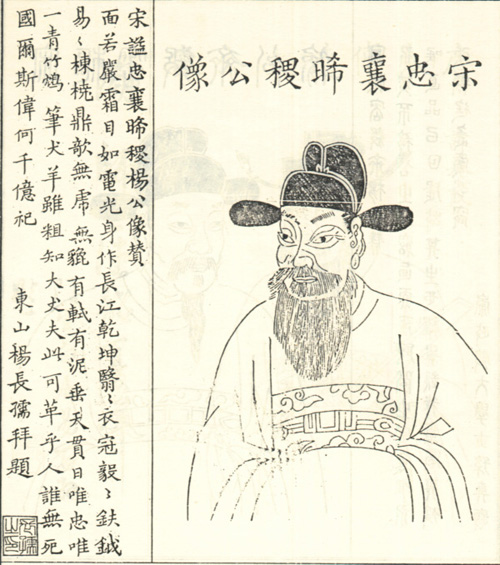 宋忠襄晞稷公像
宋諡忠襄晞稷楊公像贊
面若嚴霜目如電光身作長江乾坤翳〻衣冠毅〻鈇鉞
易〻棟橈鼎欹無虎無貔有軾有泥垂天貫日唯忠唯
一青竹鴆筆犬羊雖粗知大丈夫此可革乎人誰無死
國爾斯偉何千億祀
東山楊長孺拜題